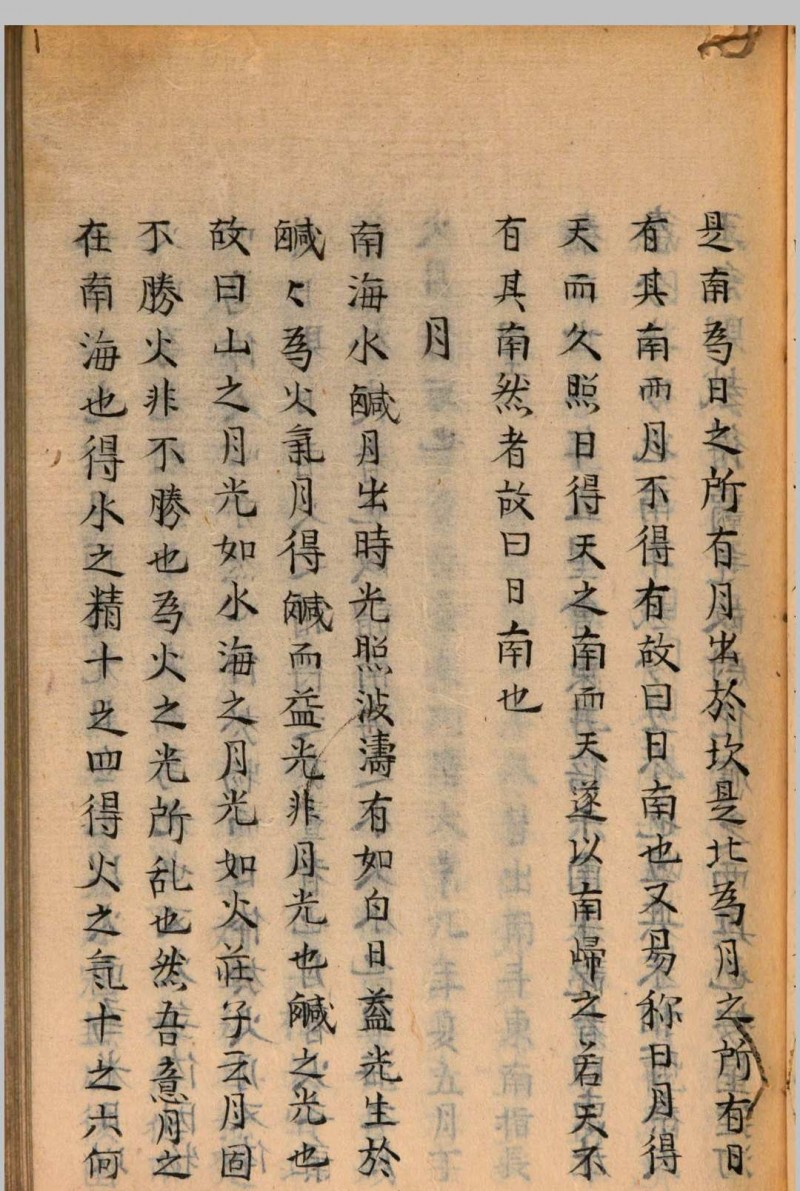 是南為日之所有月出於坎是北為月之所有日
有其南而月不得有故曰日南也又易称日月得
天而久照日得天之南而天遂以南歸之若天不
有其南然者故曰日南也
月
南海水鹹月出時光照波濤有如白日蓋光生於
鹹〻為火氣月得鹹而益光非月光也鹹之光也
故曰山之月光如水海之月光如火莊子云月固
不勝火非不勝也為火之光所乱也然吾意月之
在南海也得水之精十之四得火之氣十之六何